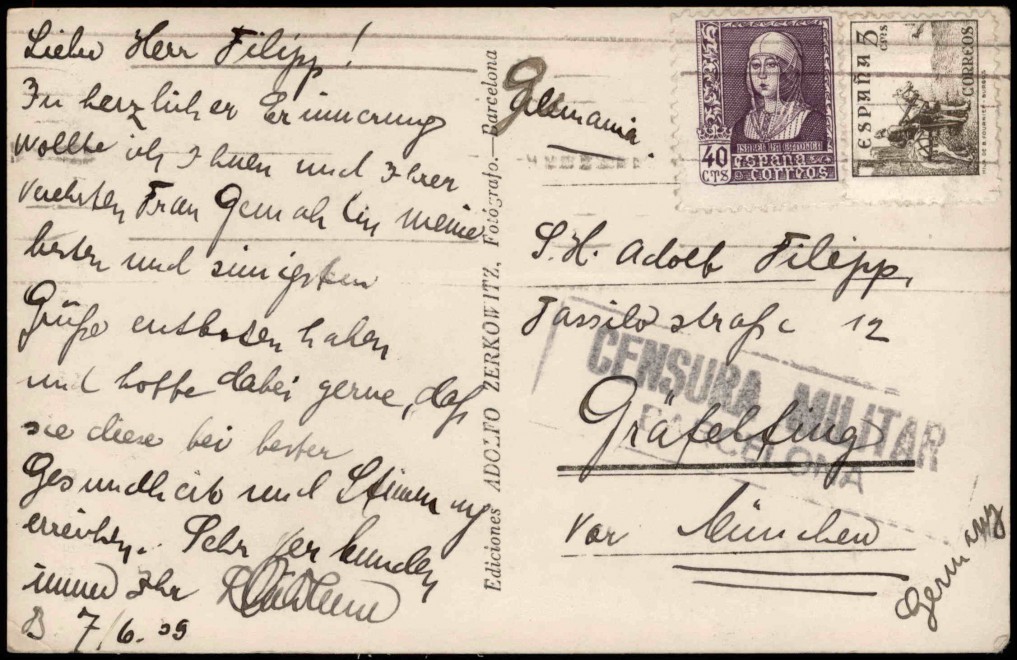 Lieber Herr Filipp!
In herzlicher Erinnerung
wollte ich Ihnen und Ihrer
verehrten Frau Gemahlin meine
besten und sinnigsten
Grüße entboten haben
und hoffe dabei gerne, daß
sie diese bei bester
Gesundheit und Stimmung
erreichen. Sehr verbunden
immer Ihr
B 7/6. 39
Ediciones ADOLFO ZERKOWITZ, Fotógrafo.—Barcelona
Alemania
40 CTS
ISABEL LA CATOLICA
ESPAÑA
CORREOS
ESPAÑA 5 CTS
CORREOS
S.H. Adolf Filipp,
Tassilostraße 12
Gräfelfing
vor München
Germany
CENSURA MILITAR
BARCELONA